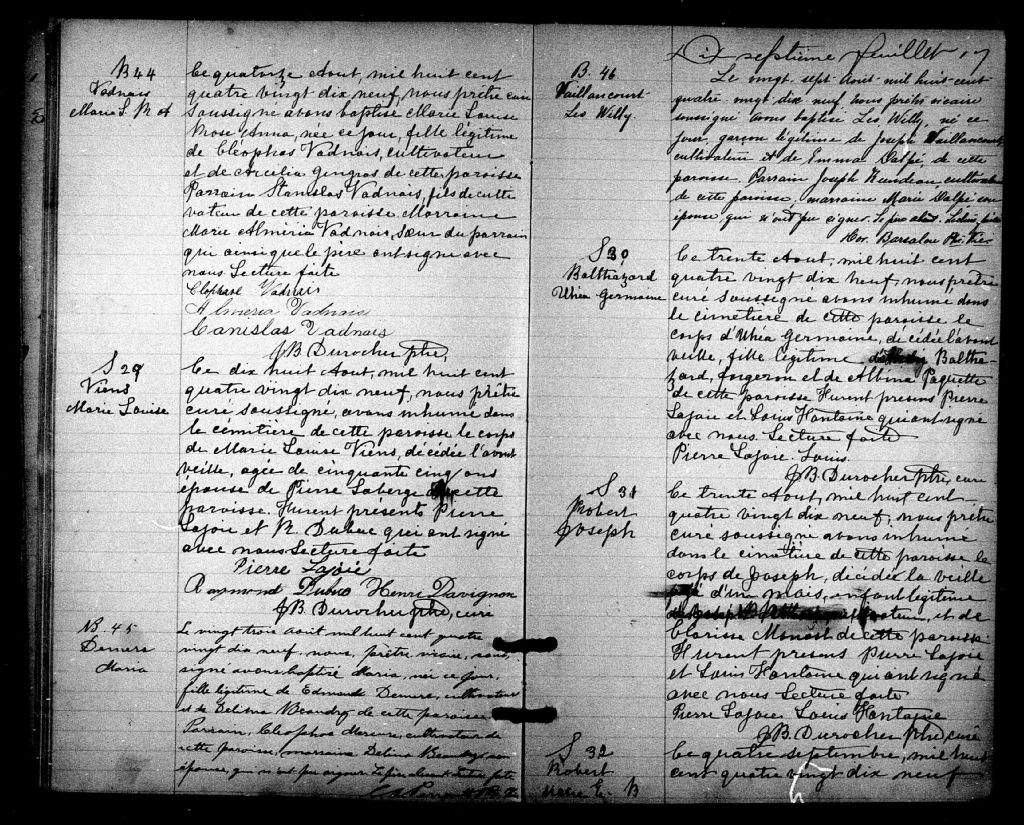 B 44
Vadnais
Marie L. R. A
Ce quatorze Aout, mil huit cent
quatre vingt dix neuf, nous prêtre curé
soussigné avons baptisé Marie Louise
Rose Anna, née ce jour, fille légitime
de Cléophas Vadnais, cultivateur
et de Arcelia Gingras de cette paroisse
Parrain Stanislas Vadnais, fils de culti
vateur de cette paroisse Marraine
Marie Almeria Vadnais, sœur du parrain
qui ainsi que le père ont signé avec
nous Lecture faite
Cleophase Vadnais
Almeria Vadnais
Canislas Vadnais
JB. Durocher ptre,
S 29
Viens
Marie Louise
Ce dix huit Aout, mil huit cent
quatre vingt dix neuf, nous prêtre
curé soussigné, avons inhumé dans
le cémitière de cette paroisse le corps
de Marie Louise Viens, décédée l'avant
veille, agée de cinquante cinq ans
épouse de Pierre Laberge de cette
paroisse. Furent présents Pierre
Lajoie et R. Dubuc qui ont signé
avec nous Lecture faite
Pierre Lajoie
Raymond Dubuc Henri Davignon
JB. Durocher ptre, curé
B. 45
Demers
Maria
Le vingt trois Août mil huit cent quatre
vingt dix neuf, nous, prêtre vicaire, sous,
signé avons baptisé Maria, née ce jour,
fille légitime de Edmond Demers, cultivateur
et de Délima Beaudry de cette paroisse
Parrain, Cléophas Mercure, cultivateur de
cette paroisse, marraine Delima Beaudry, son
épouse, qui n'ont pu signer. Le père absent Lecture faite
Dix septième feuillet 17
B. 46
Vaillancourt
Les Willy.
Le vingt sept Août mil huit cent
quatre vingt dix neuf nous prêtre vicaire
soussigné avons baptisé Les Willy, né ce
jour, garçon légitime de Joseph Vaillancourt
cultivateur et de Emma Dalpé de cette
paroisse. Parrain Joseph Rundeau cultivateur
de cette paroisse, marraine Marie Dalpé son
épouse, qui n'ont pu signer. Le père absent. Lecture faite
Hor. Barsalou Ptre Vic
S 30
Balthazard
Uhéa Germaine
Ce trente Aout, mil huit cent
quatre vingt dix neuf, nous prêtre
curé soussigné avons inhumé dans
le cimetière de cette paroisse le
corps d'Uhéa Germaine, décédée l'avant
veille, fille légitime Baltha-
zard, forgeron et de Albina Paquette
de cette paroisse Furent présens Pierre
Lajoie et Louis Fontaine qui ont signé
avec nous. Lecture faite
Pierre Lajoie. Louis.
JB. Durocher ptre, curé
S 31
Robert
Joseph
Ce trente Aout, mil huit cent
quatre vingt dix neuf, nous prêtre
curé soussigné avons inhumé
dans le cimetière de cette paroisse le
corps de Joseph, décédé la veille
agé d'un mois, enfant légitime
et de
Clarisse Monast de cette paroisse
Furent présens Pierre Lajoie
et Louis Fontaine qui ont signé
avec nous Lecture faite
Pierre Lajoie Louis Fontaine
JB. Durocher ptre, curé
S 32
Robert
Marie E. B
Ce quatre septembre, mil huit
cent quatre vingt dix neuf